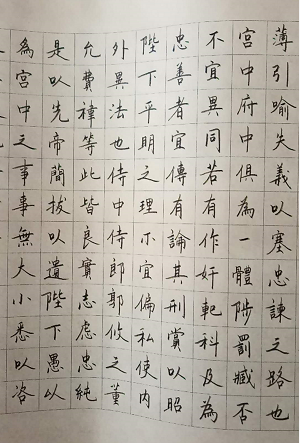 薄引喻失義以塞忠諫之路也
宮中府中俱為一體陟罰臧否
不宜異同若有作奸軓科及為
忠善者宜傳有論其刑賞以昭
陛下平明之理不宜偏私使内
外異法也侍中侍郎郭攸之董
允費禕等此皆良實志慮忠純
是以先帝簡拔以遺陛下愚以
為宮中之事事無大小悉以咨